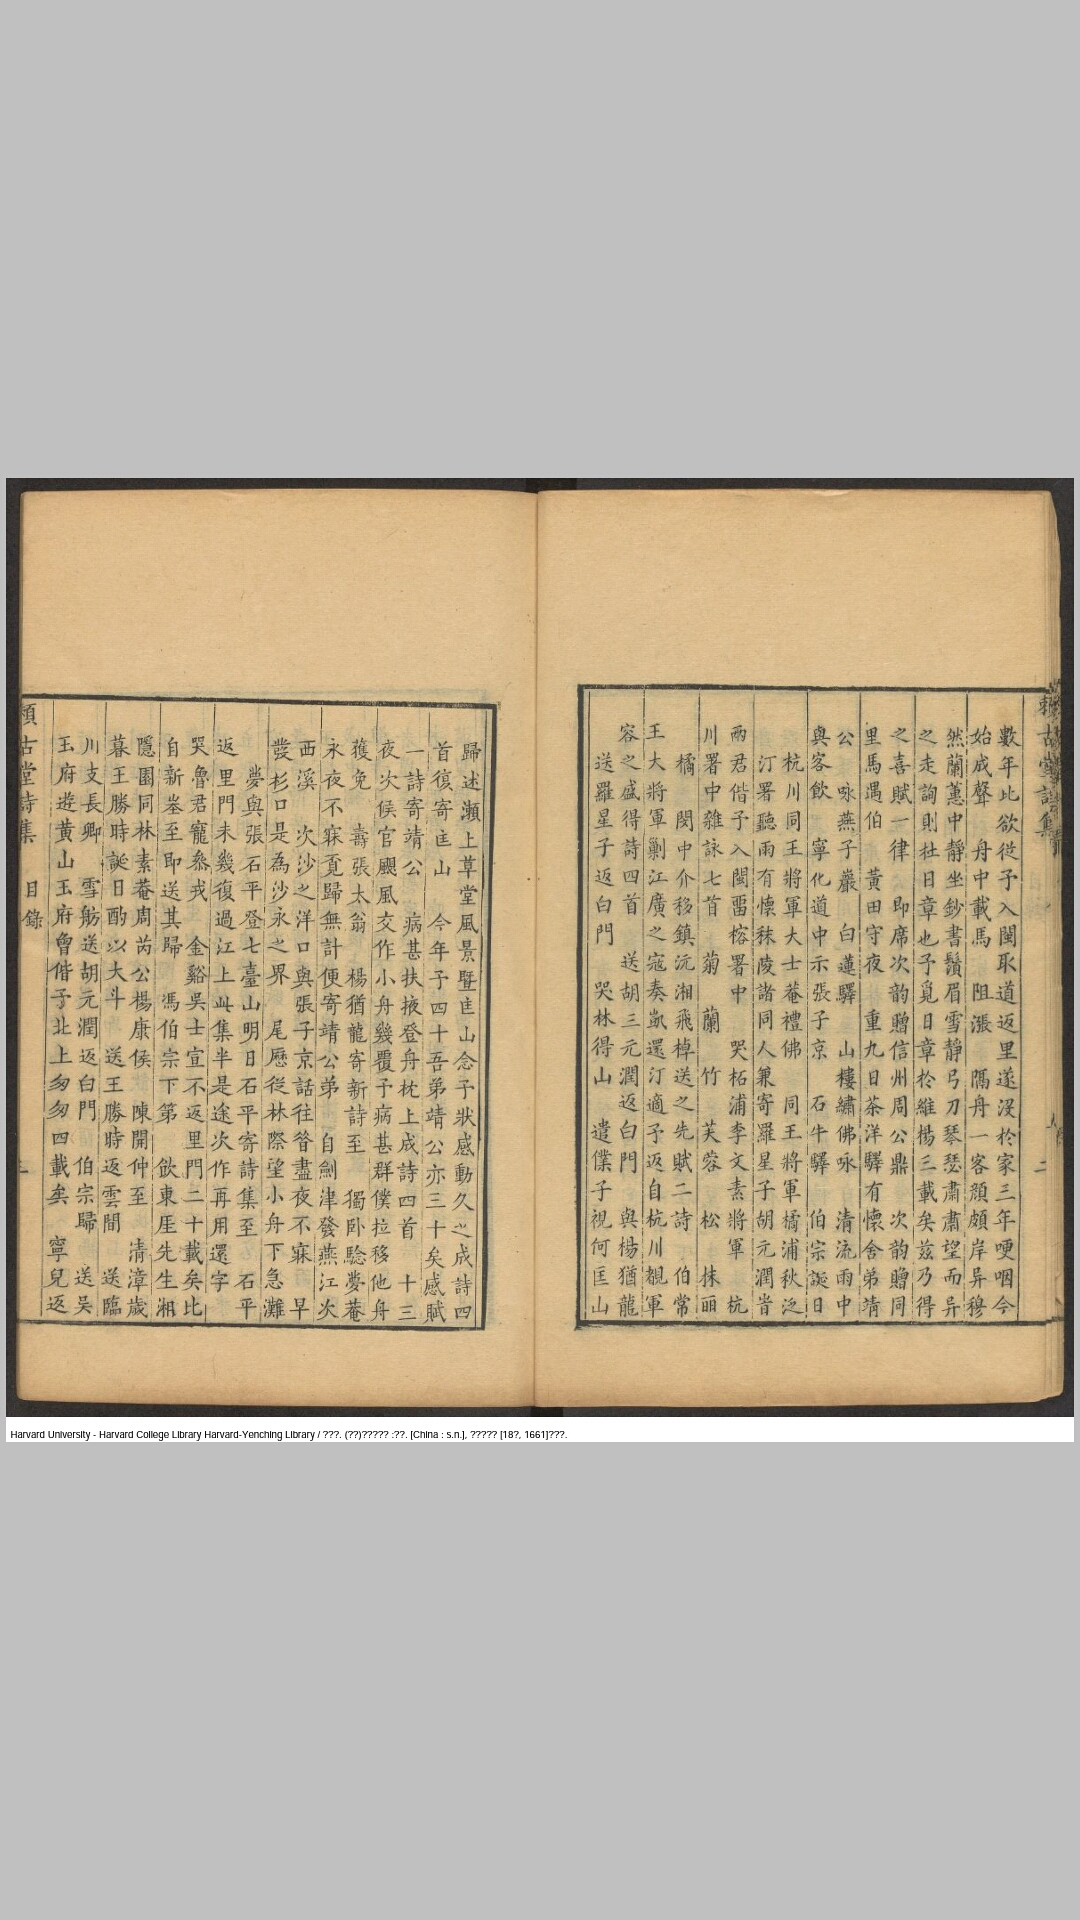 數年比欲從予入閩取道返里遂沒於家三年哽咽今
始成聲　舟中載馬　阻漲　隔舟一客顏頗岸异穆
然蘭蕙中靜坐鈔書鬚眉雪靜弓刀琴瑟肅肅望而异
之走詢則杜日章也予覓日章於維楊三載矣茲乃得
之喜賦一律　即席次韵贈信州周公鼎　次韵贈同
里馬遇伯　黃田守夜　重九日茶洋驛有懷舍弟靖
公　咏燕子巖　白蓮驛　山樓繡佛咏　清流雨中
與客飲　寧化道中示張子京　石牛驛　伯宗誕日
杭川同王將軍大士菴禮佛　同王將軍橘浦秋泛
汀署聽雨有懷秣陵諸同人兼寄羅星子胡元潤旹
兩君偕予入閩畱榕署中　哭柘浦李文素將軍　杭
川署中雜詠七首　菊　蘭　竹　芙蓉　松　抹麗
橘　閔中介移鎮沅湘飛棹送之先賦二詩　伯常
王大將軍剿江廣之寇奏凱還汀適予返自杭川覩軍
容之盛得詩四首　送胡三元潤返白門　與楊猶龍
送羅星子返白門　哭林得山　遣僕子視何匡山
歸述瀨上草堂風景曁匡山念予狀感動久之成詩四
首復寄匡山　今年予四十吾弟靖公亦三十矣感賦
一詩寄靖公　病甚扶掖登舟枕上成詩四首　十三
夜次侯官颶風交作小舟幾覆予病甚群僕拉移他舟
獲免　壽張太翁　楊猶龍寄新詩至　獨卧驗夢菴
永夜不寐覓歸無計便寄靖公弟　自劍津發燕江次
西溪　次沙之洋口與張子京話往昝盡夜不寐　早
發杉口是為沙永之界　尾歷從林際望小舟下急灘
夢與張石平登七臺山明日石平寄詩集至　石平
返里門未幾復過江上此集半是途次作再用還字
哭魯君寵叅戎　金谿吳士宣不返里門二十載矣比
自新埊至即送其歸　馮伯宗下第　飲東厓先生湘
隱園同林素菴周芮公楊康侯　陳開仲至　清漳歲
暮王勝時誕日酌以大斗　送王勝時返雲間　送臨
川支長卿　雪舫送胡元潤返白門　伯宗歸　送吳
玉府遊黃山玉府曾偕予北上匆匆四載矣　寧兒返
賴古堂詩集　目錄